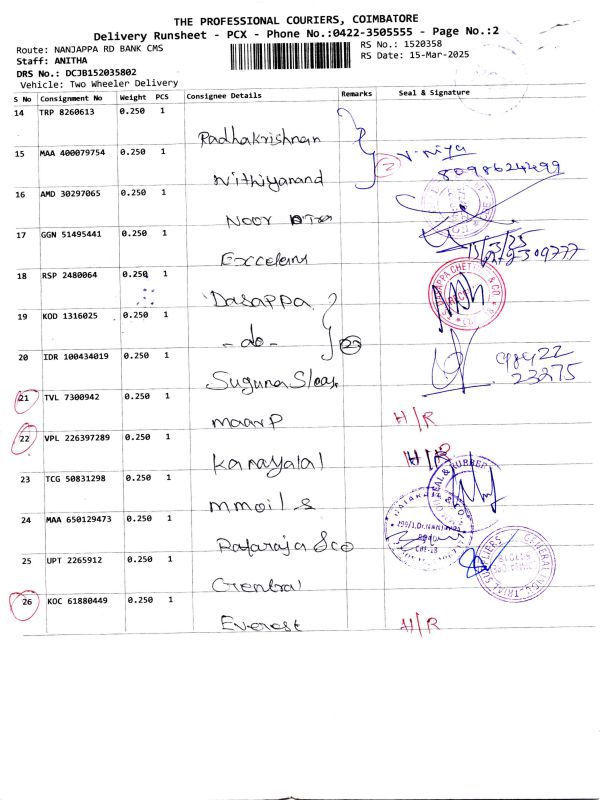 THE PROFESSIONAL COURIERS, COIMBATORE
Delivery Runsheet - PCX - Phone No.:0422-3505555 - Page No.:2
Route: NANJAPPA RD BANK CMS
RS No.: 1520358
Staff: ANITHA
RS Date: 15-Mar-2025
DRS No.: DCJB152035802
Vehicle: Two Wheeler Delivery
S No Consignment No Weight PCS Consignee Details Remarks Seal & Signature
14 TRP 8260613 0.250 1
Radhakrishnan
15 MAA 400079754 0.250 1
2
8098624499
Nithiyanand
16 AMD 30297065 0.250 1
Noor
17 GGN 51495441 0.250 1
15/3/25
18 RSP 2480064 0.250 1
Dasappa
19 KOD 1316025 0.250 1
-do-
20 IDR 100434019 0.250 1
Suguna
23275
21 TVL 7300942 0.250 1
H/R
22 VPL 226397289 0.250 1
H/R
Kanayalal
23 TCG 50831298 0.250 1
24 MAA 650129473 0.250 1
25 UPT 2265912 0.250 1
Central
26 KOC 61880449 0.250 1
Everest H/R